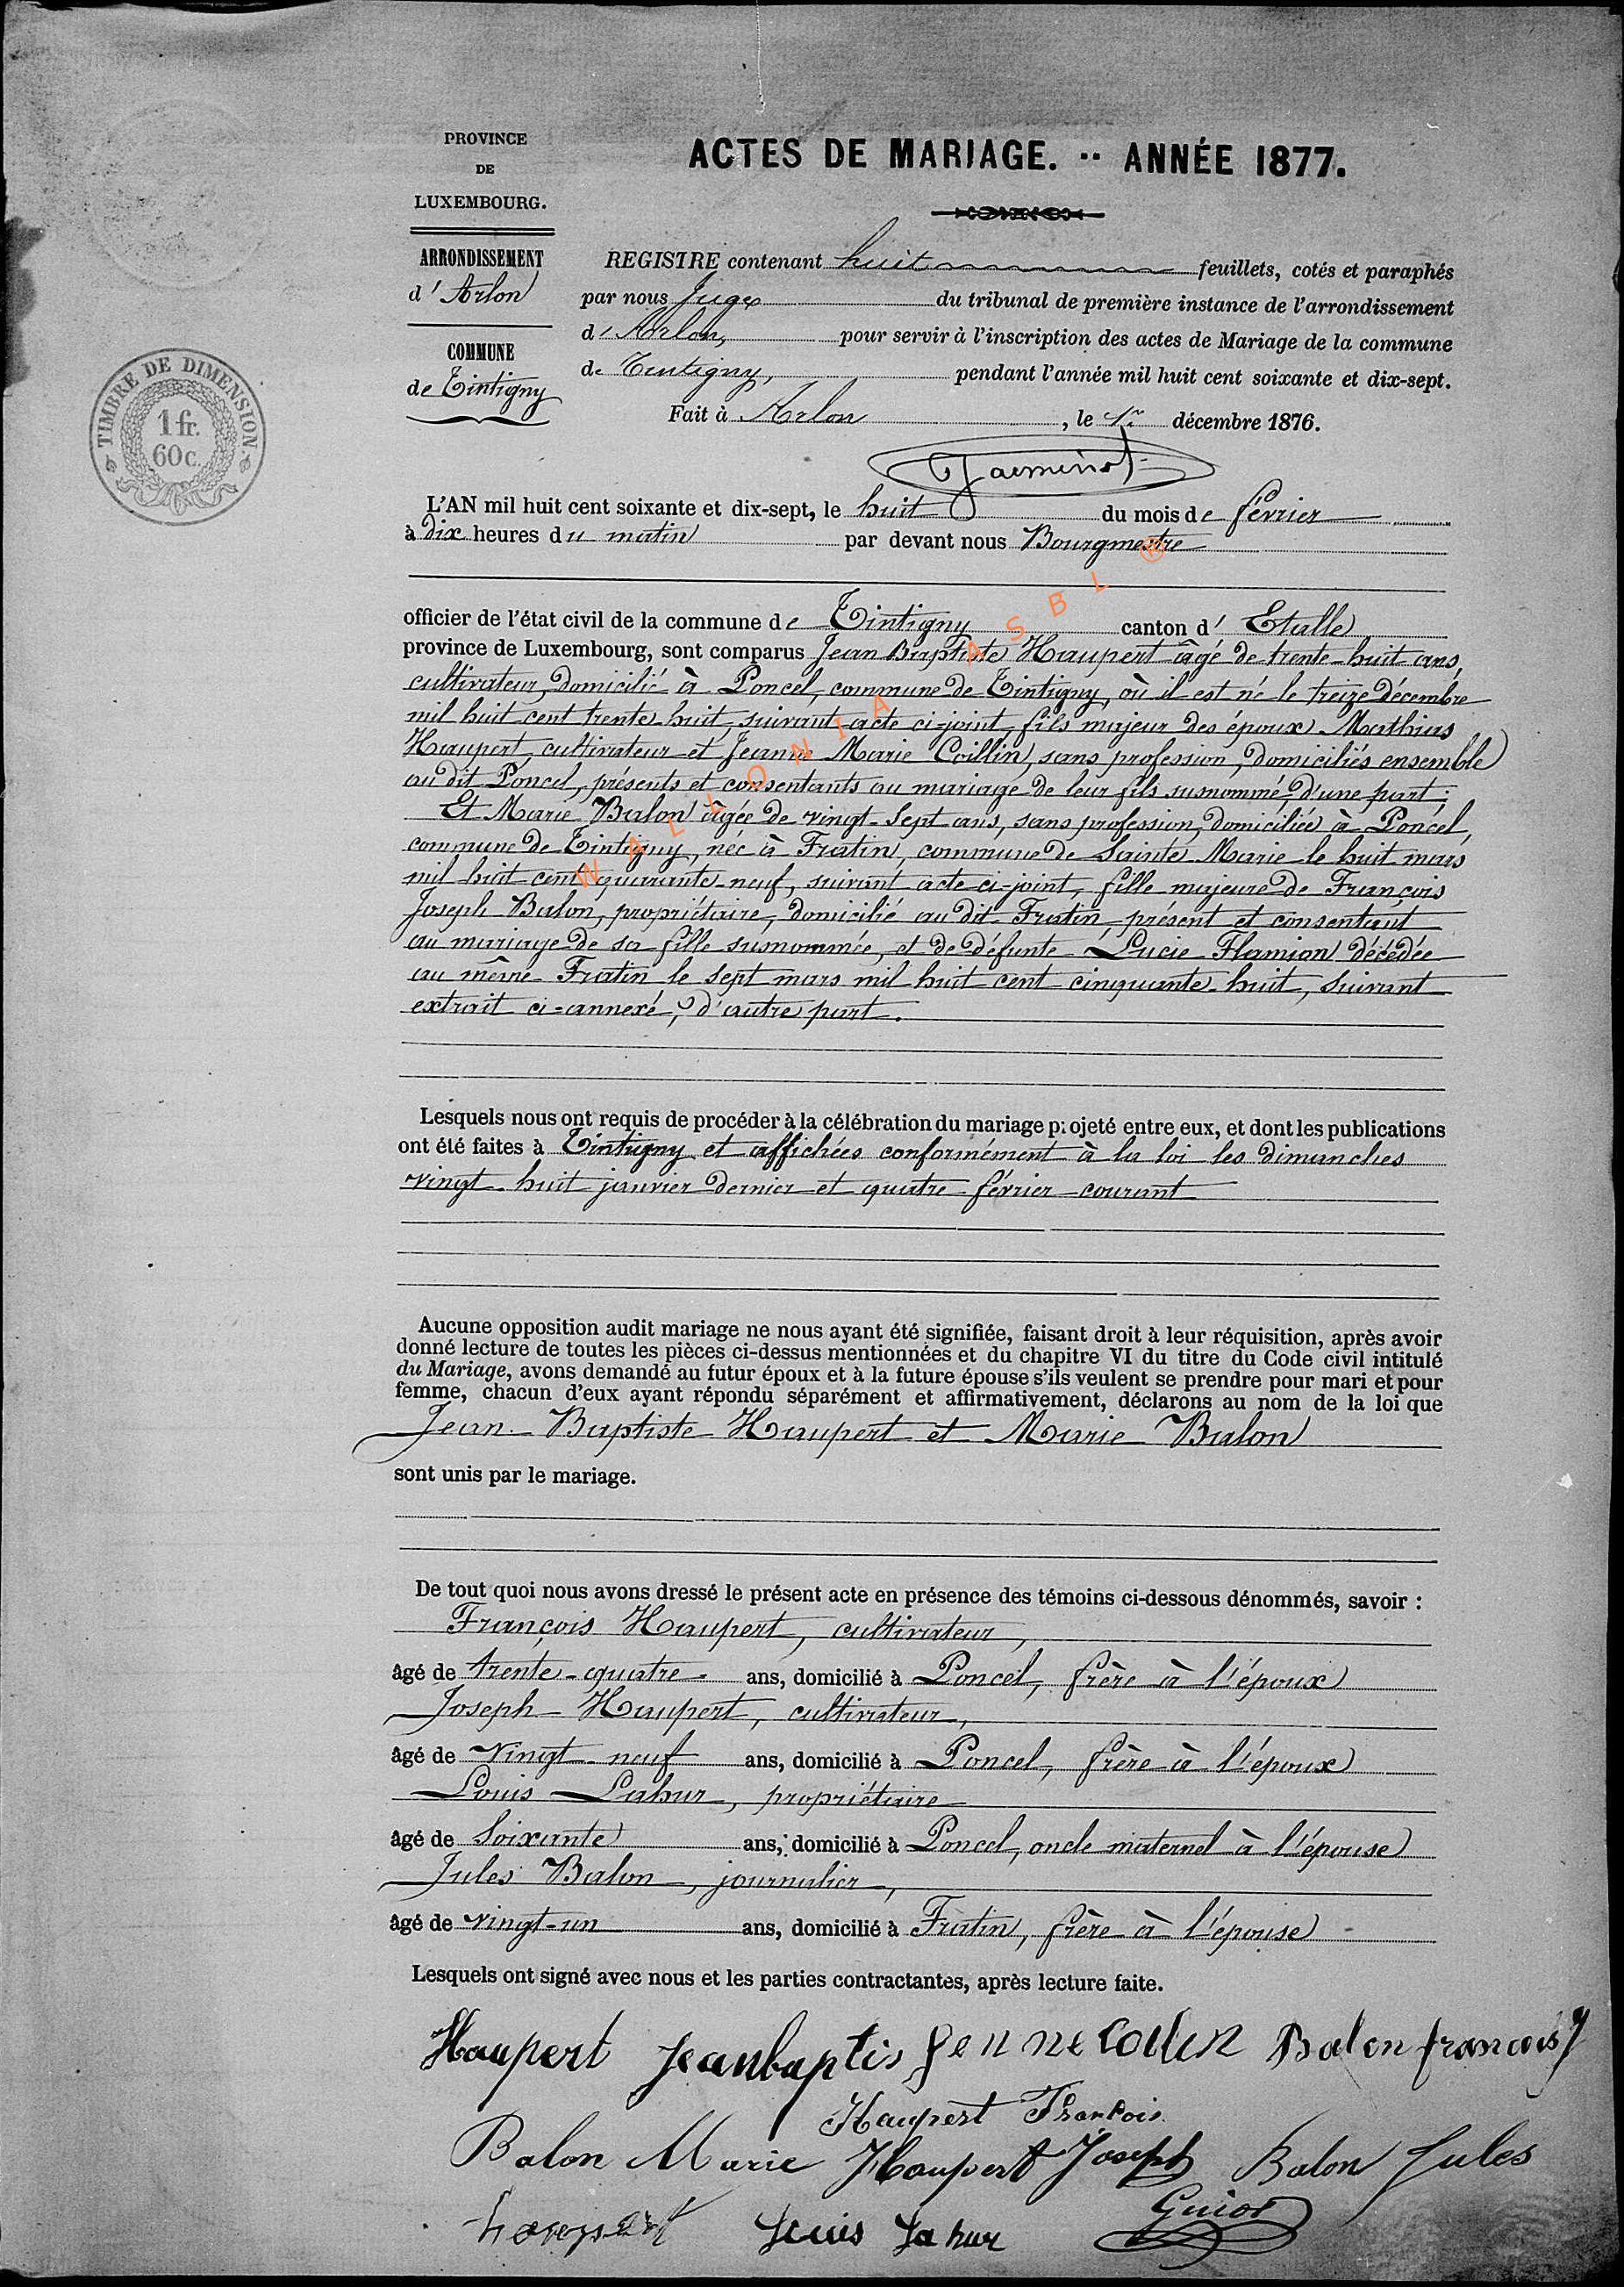 PROVINCE
DE
LUXEMBOURG.
ARRONDISSEMENT
d'Arlon
COMMUNE
de Tintigny
TIMBRE DE DIMENSION
1 fr.
60 c.
ACTES DE MARIAGE. -- ANNÉE 1877.
REGISTRE contenant huit feuillets, cotés et paraphés
par nous Juge du tribunal de première instance de l'arrondissement
d'Arlon, pour servir à l'inscription des actes de Mariage de la commune
de Tintigny, pendant l'année mil huit cent soixante et dix-sept.
Fait à Arlon, le 1er décembre 1876.
L'AN mil huit cent soixante et dix-sept, le huit du mois de février
à dix heures du matin par devant nous Bourgmestre
officier de l'état civil de la commune de Tintigny canton d'Etalle
province de Luxembourg, sont comparus Jean Baptiste Haupert âgé de trente-huit ans,
cultivateur, domicilié à Poncel, commune de Tintigny, où il est né le treize décembre
mil huit cent trente huit, suivant acte ci-joint, fils majeur des époux Mathias
Haupert, cultivateur et Jeanne Marie Collin, sans profession, domiciliés ensemble
au dit Poncel, présents et consentants au mariage de leur fils susnommé, d'une part;
Et Marie Balon âgée de vingt-sept ans, sans profession, domiciliée à Poncel,
commune de Tintigny, née à Fratin, commune de Sainte Marie le huit mars
mil huit cent quarante-neuf, suivant acte ci-joint, fille majeure de François
Joseph Balon, propriétaire, domicilié au dit Fratin, présent et consentant
au mariage de sa fille susnommée, et de défunte Lucie Flamion décédée
au même Fratin le sept mars mil huit cent cinquante-huit, suivant
extrait ci-annexé, d'autre part.
WALLONIA ASBL ®
Lesquels nous ont requis de procéder à la célébration du mariage projeté entre eux, et dont les publications
ont été faites à Tintigny et affichées conformément à la loi les dimanches
vingt-huit janvier dernier et quatre février courant
Aucune opposition audit mariage ne nous ayant été signifiée, faisant droit à leur réquisition, après avoir
donné lecture de toutes les pièces ci-dessus mentionnées et du chapitre VI du titre du Code civil intitulé
du Mariage, avons demandé au futur époux et à la future épouse s'ils veulent se prendre pour mari et pour
femme, chacun d'eux ayant répondu séparément et affirmativement, déclarons au nom de la loi que
Jean-Baptiste Haupert et Marie Balon
sont unis par le mariage.
De tout quoi nous avons dressé le présent acte en présence des témoins ci-dessous dénommés, savoir :
François Haupert, cultivateur,
âgé de trente-quatre ans, domicilié à Poncel, frère à l'époux
Joseph Haupert, cultivateur,
âgé de vingt-neuf ans, domicilié à Poncel, frère à l'époux
Louis Lahur, propriétaire
âgé de soixante ans, domicilié à Poncel, oncle maternel à l'épouse
Jules Balon, journalier,
âgé de vingt-un ans, domicilié à Fratin, frère à l'épouse
Lesquels ont signé avec nous et les parties contractantes, après lecture faite.
Haupert jeanbaptis jenne Collin Balon francois J
Haupert François
Balon Marie Haupert Joseph Balon Jules
haupert Louis Lahur Guiot